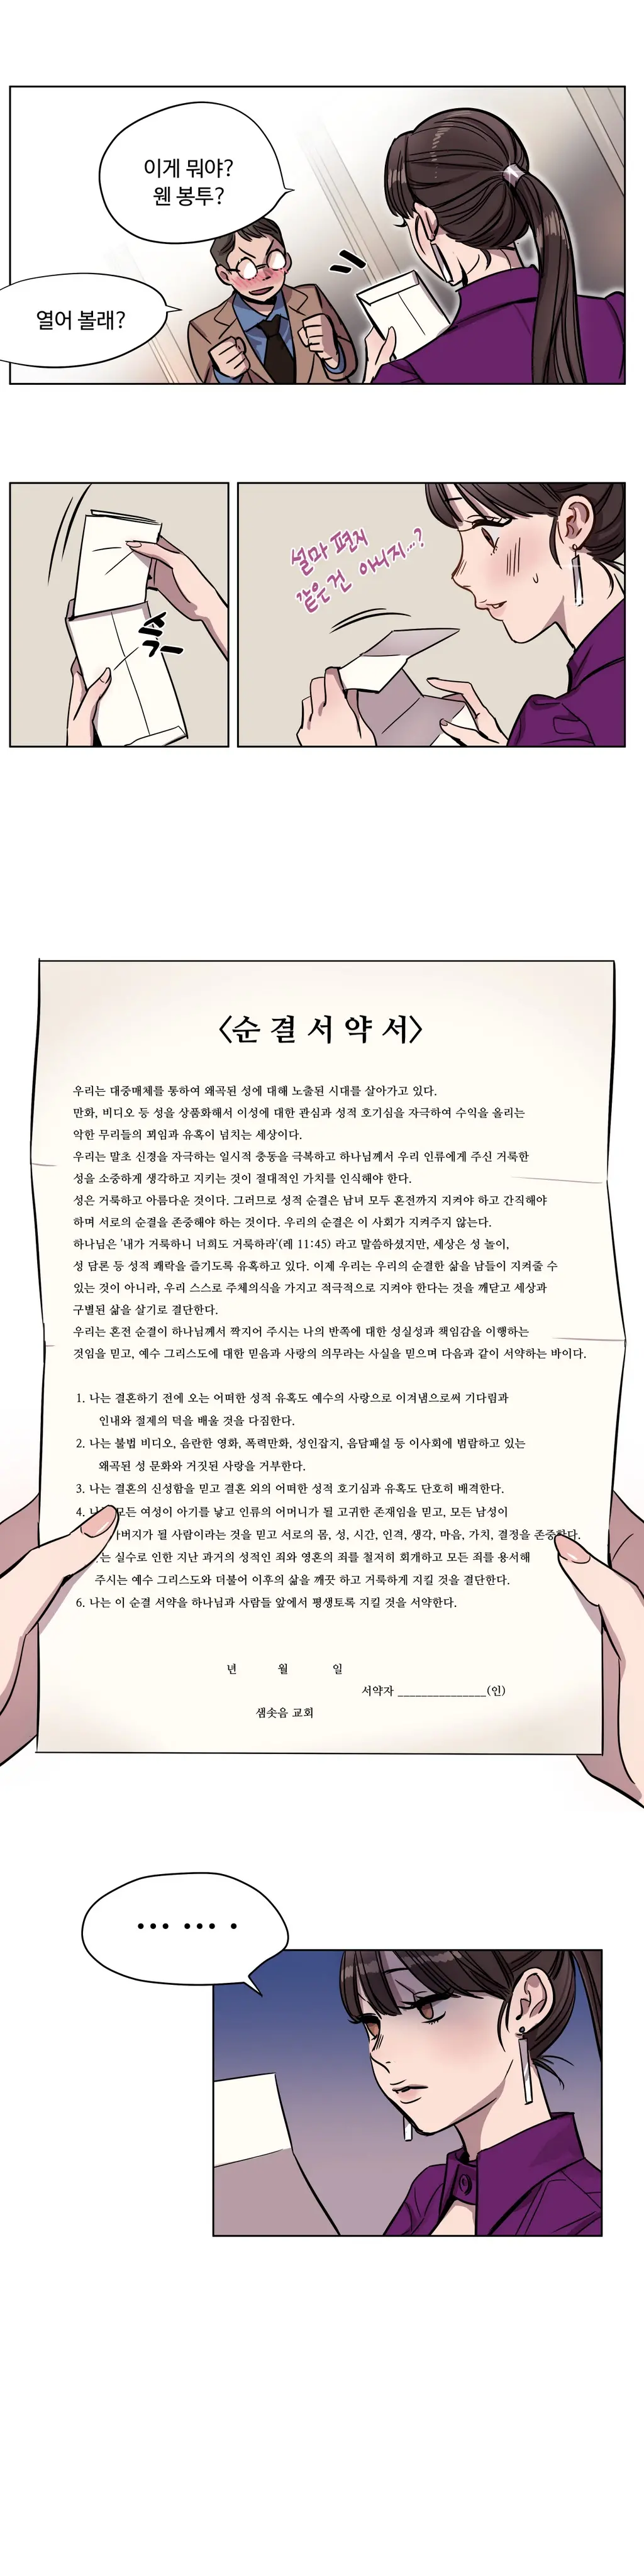 이게 뭐야?
웬 봉투?
열어 볼래?
슥-
설마 편지
같은 건 아니지...?
<순결서약서>
우리는 대중매체를 통하여 왜곡된 성에 대해 노출된 시대를 살아가고 있다.
만화, 비디오 등 성을 상품화해서 이성에 대한 관심과 성적 호기심을 자극하여 수익을 올리는
악한 무리들의 꾀임과 유혹이 넘치는 세상이다.
우리는 말초 신경을 자극하는 일시적 충동을 극복하고 하나님께서 우리 인류에게 주신 거룩한
성을 소중하게 생각하고 지키는 것이 절대적인 가치를 인식해야 한다.
성은 거룩하고 아름다운 것이다. 그러므로 성적 순결은 남녀 모두 혼전까지 지켜야 하고 간직해야
하며 서로의 순결을 존중해야 하는 것이다. 우리의 순결은 이 사회가 지켜주지 않는다.
하나님은 '내가 거룩하니 너희도 거룩하라'(레 11:45) 라고 말씀하셨지만, 세상은 성 놀이,
성 담론 등 성적 쾌락을 즐기도록 유혹하고 있다. 이제 우리는 우리의 순결한 삶을 남들이 지켜줄 수
있는 것이 아니라, 우리 스스로 주체의식을 가지고 적극적으로 지켜야 한다는 것을 깨닫고 세상과
구별된 삶을 살기로 결단한다.
우리는 혼전 순결이 하나님께서 짝지어 주시는 나의 반쪽에 대한 성실성과 책임감을 이행하는
것임을 믿고, 예수 그리스도에 대한 믿음과 사랑의 의무라는 사실을 믿으며 다음과 같이 서약하는 바이다.
1. 나는 결혼하기 전에 오는 어떠한 성적 유혹도 예수의 사랑으로 이겨냄으로써 기다림과
인내와 절제의 덕을 배울 것을 다짐한다.
2. 나는 불법 비디오, 음란한 영화, 폭력만화, 성인잡지, 음담패설 등 이사회에 범람하고 있는
왜곡된 성 문화와 거짓된 사랑을 거부한다.
3. 나는 결혼의 신성함을 믿고 결혼 외의 어떠한 성적 호기심과 유혹도 단호히 배격한다.
4. 나는 모든 여성이 아기를 낳고 인류의 어머니가 될 고귀한 존재임을 믿고, 모든 남성이
아버지가 될 사람이라는 것을 믿고 서로의 몸, 성, 시간, 인격, 생각, 마음, 가치, 결정을 존중한다.
는 실수로 인한 지난 과거의 성적인 죄와 영혼의 죄를 철저히 회개하고 모든 죄를 용서해
주시는 예수 그리스도와 더불어 이후의 삶을 깨끗 하고 거룩하게 지킬 것을 결단한다.
6. 나는 이 순결 서약을 하나님과 사람들 앞에서 평생토록 지킬 것을 서약한다.
년 월 일
서약자 _______________(인)
샘솟음 교회
... ... .